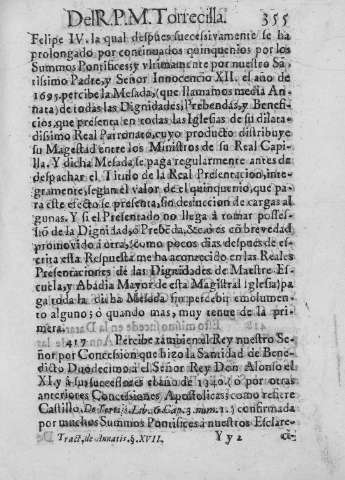 Del R. P. M. Torrecilla. 355
Felipe IV. la qual despues successivamente se ha
prolongado por continuados quinquenios por los
Summos Pontifices; y vltimamente por nuestro Sã-
tissimo Padre, y Señor Innocencio XII. el año de
1695. percibe la Mesada, (que llamamos media An-
nata) de todas las Dignidades, Prebendas, y Benefi-
cios, que presenta en todas las Iglesias de su dilata-
dissimo Real Patronato, cuyo producto distribuye
su Magestad entre los Ministros de su Real Capi-
lla. Y dicha Mesada se paga regularmente antes de
despachar el Titulo de la Real Presentacion, inte-
gramente, segun el valor de el quinquenio, que pa-
ra este efecto se presenta, sin deduccion de cargas al
gunas. Y si el Presentado no llega à tomar posses-
sion de la Dignidad, ò Prebẽda, ò es con brevedad
promovido à otra, (como pocos dias despues de es-
crita esta Respuesta me ha acontecido en las Reales
Presentaciones de las Dignidades de Maestre Es-
cuela, y Abadia Mayor de esta Magistral Iglesia) pa
ga toda la dicha Mesada sin percebir emolumen-
to alguno; ò quando mas, muy tenue de la pri
mera.
417 Percibe tambien el Rey nuestro Se-
ñor por Concession que hizo la Santidad de Bene-
dicto Duodecimo à el Señor Rey Don Alonso el
XI. y à sus successores el año de 1340. (ò por otras
anteriores Concessiones Apostolicas; como refiere
Castillo, De Tertijs. Lib. 6. Cap. 3. num. 1.) confirmada
por muchos Summos Pontifices à nuestros Esclare-
Tract. de Annatis. §. XVII. Y y 2 ci-